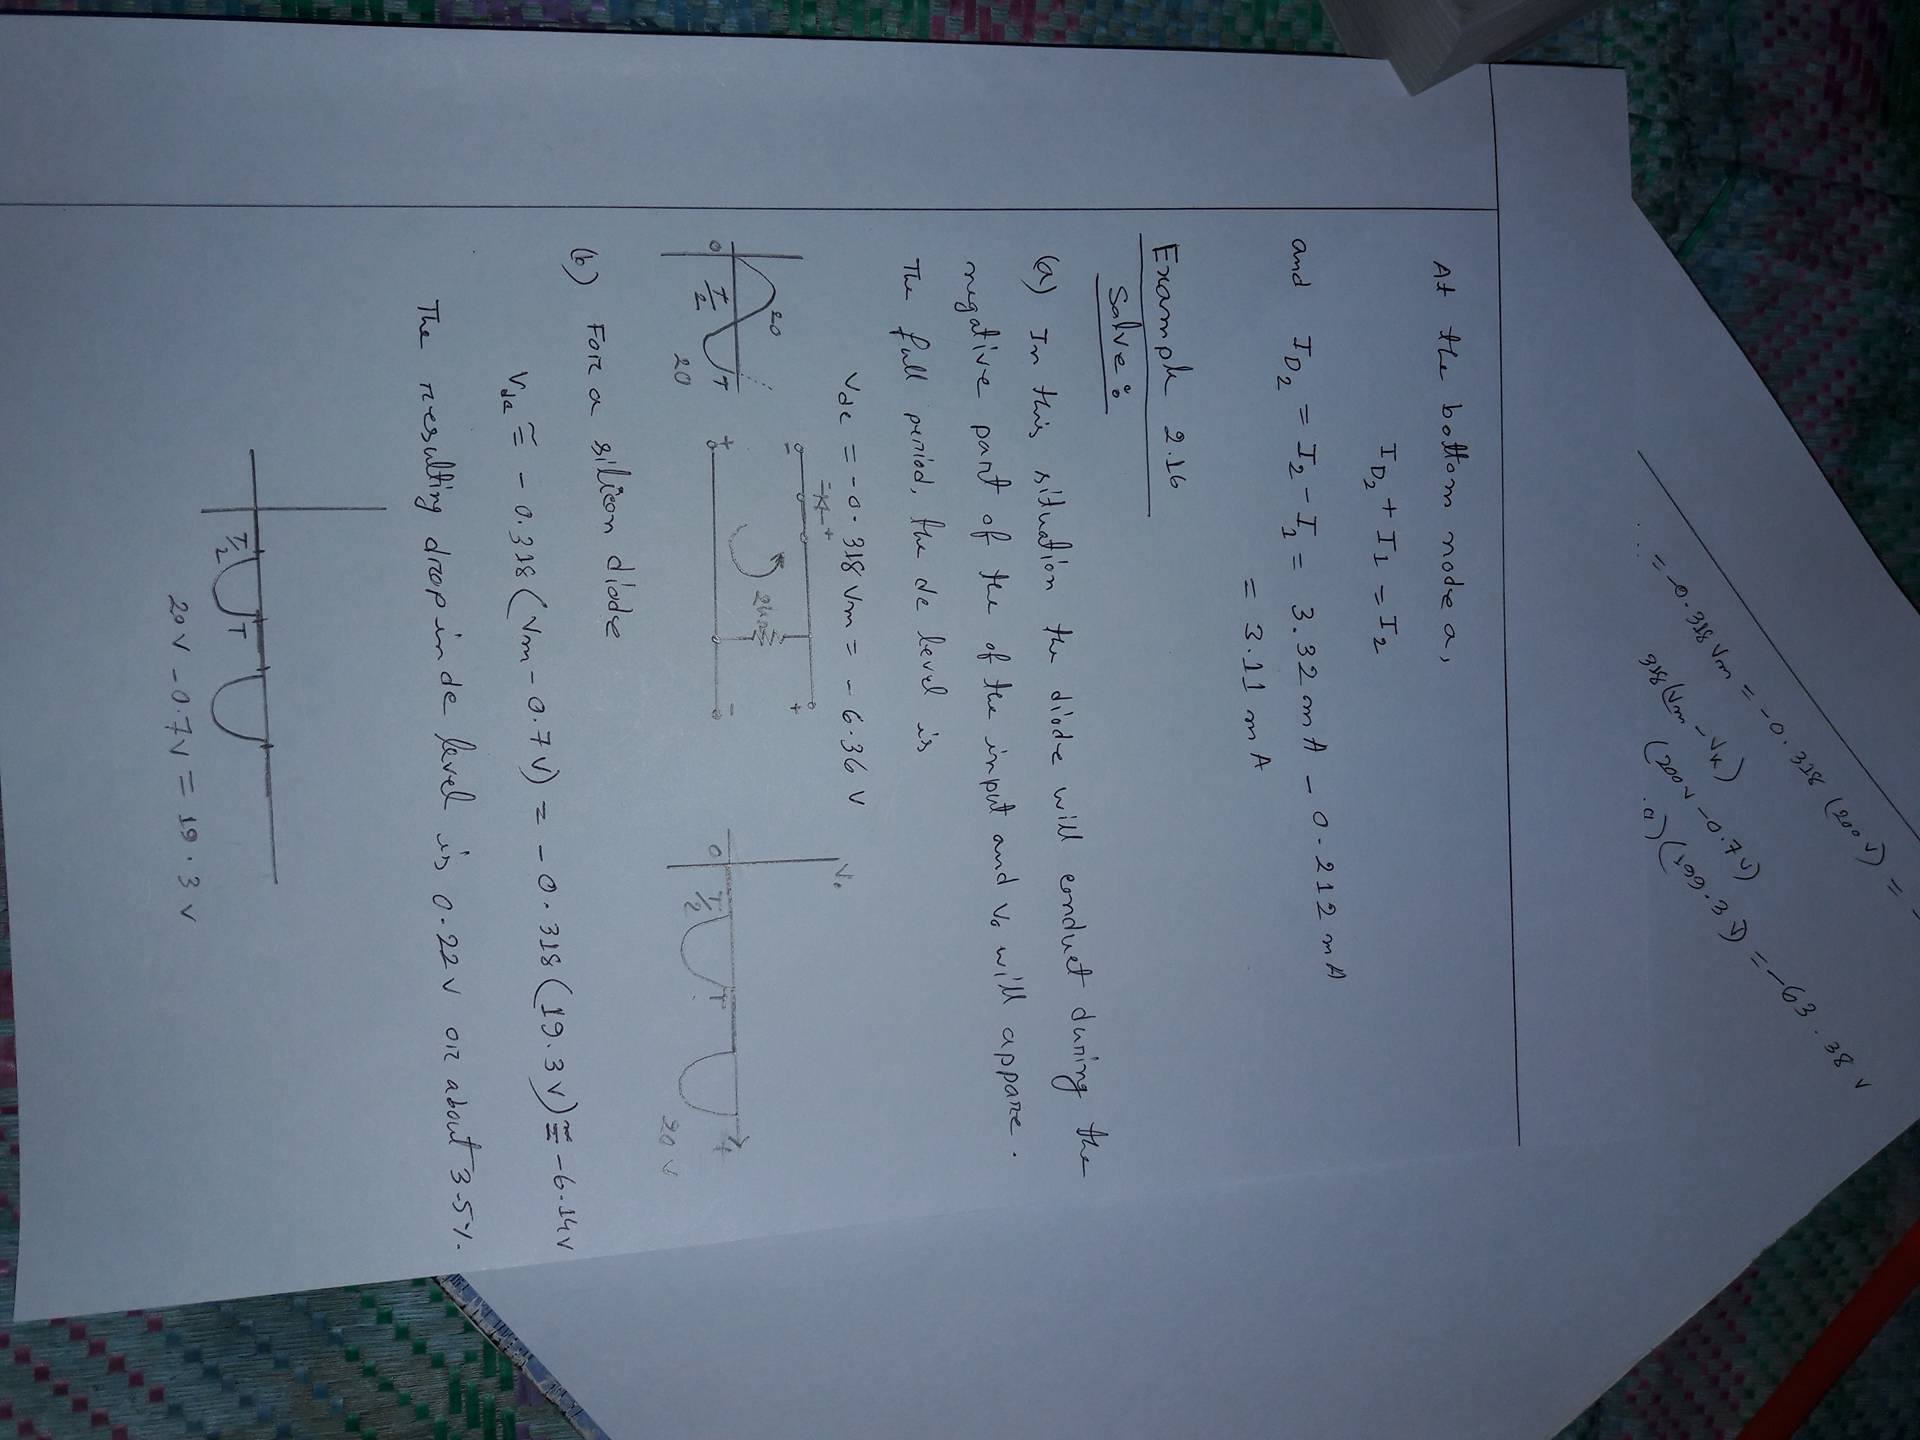 = -0.318 Vm = -0.318 (200 V) =
318 (Vm - VK)
(200 V - 0.7 V)
(199.3 V) = -63.38 V
At the bottom node a,
ID2 + I1 = I2
and ID2 = I2 - I1 = 3.32 mA - 0.212 mA
= 3.11 mA
Example 2.16
Solve:
(a) In this situation the diode will conduct during the
negative part of the of the input and Vo will appare.
The full period, the dc level is
Vdc = -0.318 Vm = -6.36 V
- +
20
0 T/2 T
20
- +
2kΩ
+ -
Vo
0 T/2 T t
20 V
(b) For a silicon diode
Vdc ≅ -0.318 (Vm - 0.7 V) = -0.318 (19.3 V) ≅ -6.14 V
The resulting drop in dc level is 0.22 V or about 3.5%.
T/2 T
20 V - 0.7 V = 19.3 V